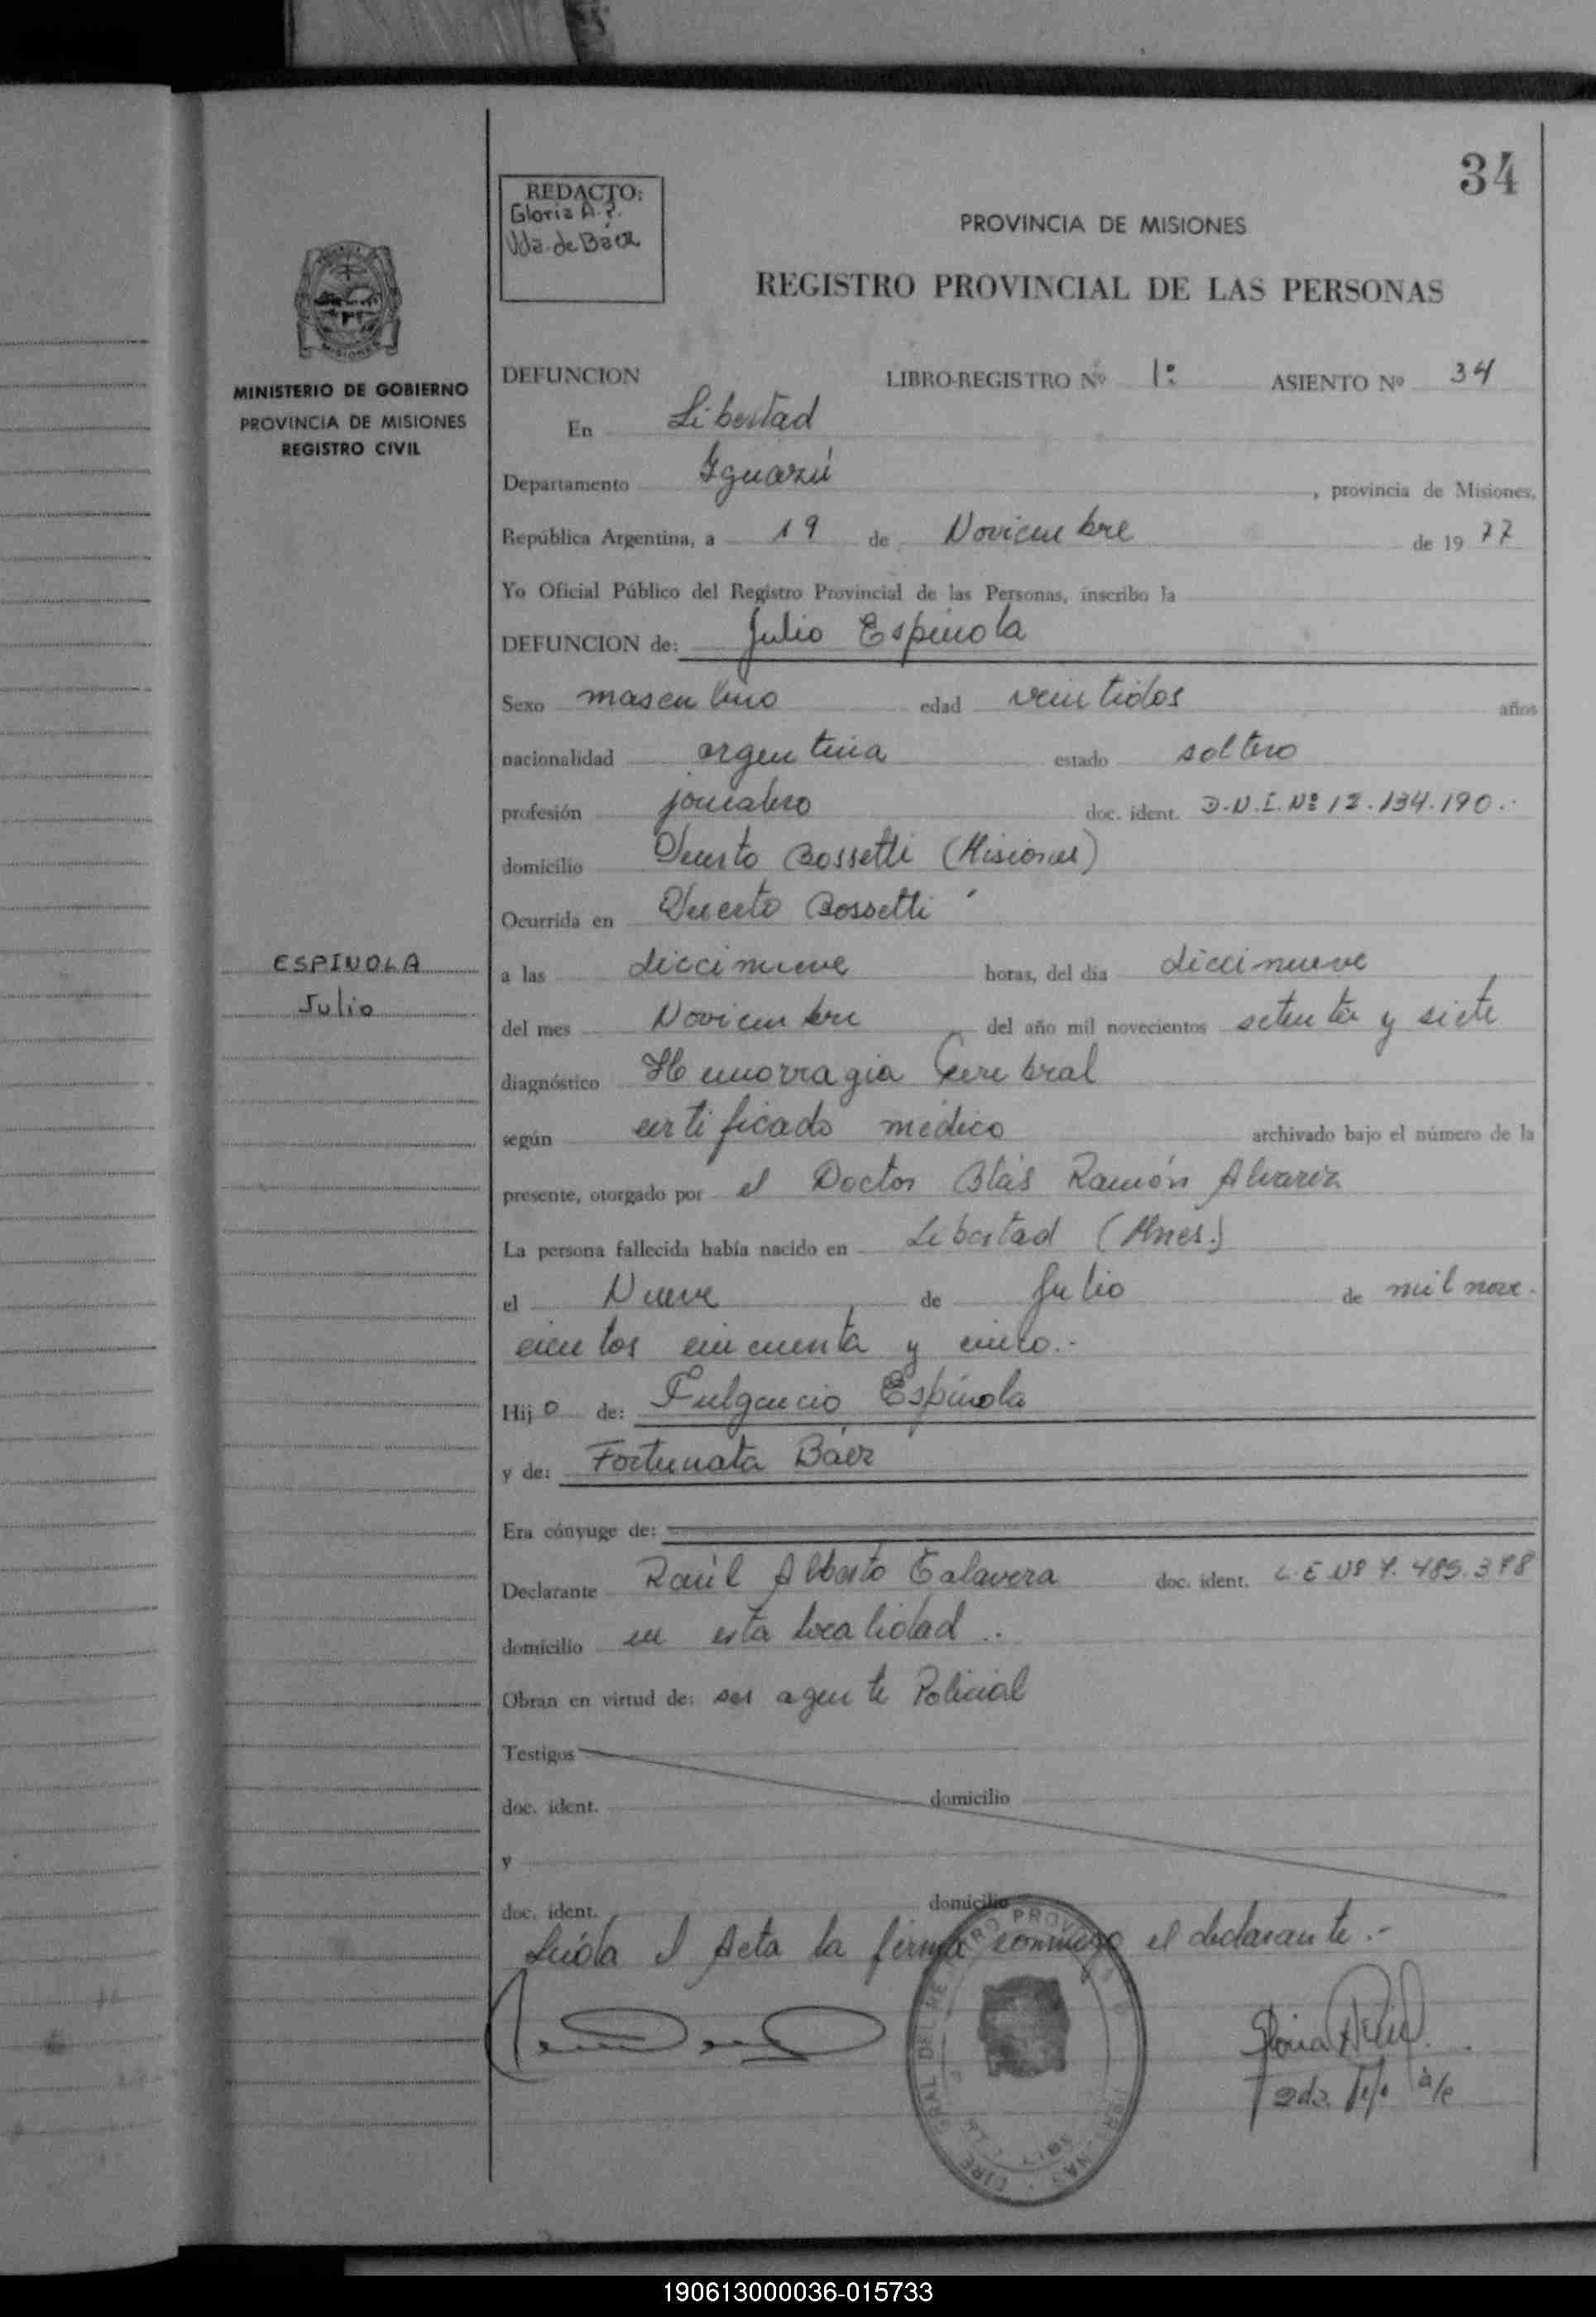 34
REDACTO:
Gloria A. P.
Vda. de Báez
PROVINCIA DE MISIONES
REGISTRO PROVINCIAL DE LAS PERSONAS
MISIONES
MINISTERIO DE GOBIERNO
PROVINCIA DE MISIONES
REGISTRO CIVIL
DEFUNCION LIBRO-REGISTRO Nº 1: ASIENTO Nº 34
En Libertad
Departamento Iguazú , provincia de Misiones,
República Argentina, a 19 de Noviembre de 19 77
Yo Oficial Público del Registro Provincial de las Personas, inscribo la
DEFUNCION de: Julio Espínola
Sexo masculino edad veintidos años
nacionalidad argentina estado soltero
profesión jornalero doc. ident. D.N.I. Nº 12.134.190.-
domicilio Puerto Bossetti (Misiones)
Ocurrida en Puerto Bossetti
ESPINOLA
Julio
a las diecinueve horas, del día diecinueve
del mes Noviembre del año mil novecientos setenta y siete
diagnóstico Hemorragia Cerebral
según certificado médico archivado bajo el número de la
presente, otorgado por el Doctor Blás Ramón Alvarez
La persona fallecida había nacido en Libertad (Mnes.)
el Nueve de Julio de mil nove-
cientos cincuenta y cinco.-
Hijo de: Fulgencio Espínola
y de: Fortunata Báez
Era cónyuge de:
Declarante Raúl Alberto Talavera doc. ident. L.E Nº 7.485.378
domicilio en esta localidad .-
Obran en virtud de: ser agente Policial
Testigos
doc. ident. domicilio
y
doc. ident. domicilio
Leída el Acta la firma conmigo el declarante.-
190613000036-015733